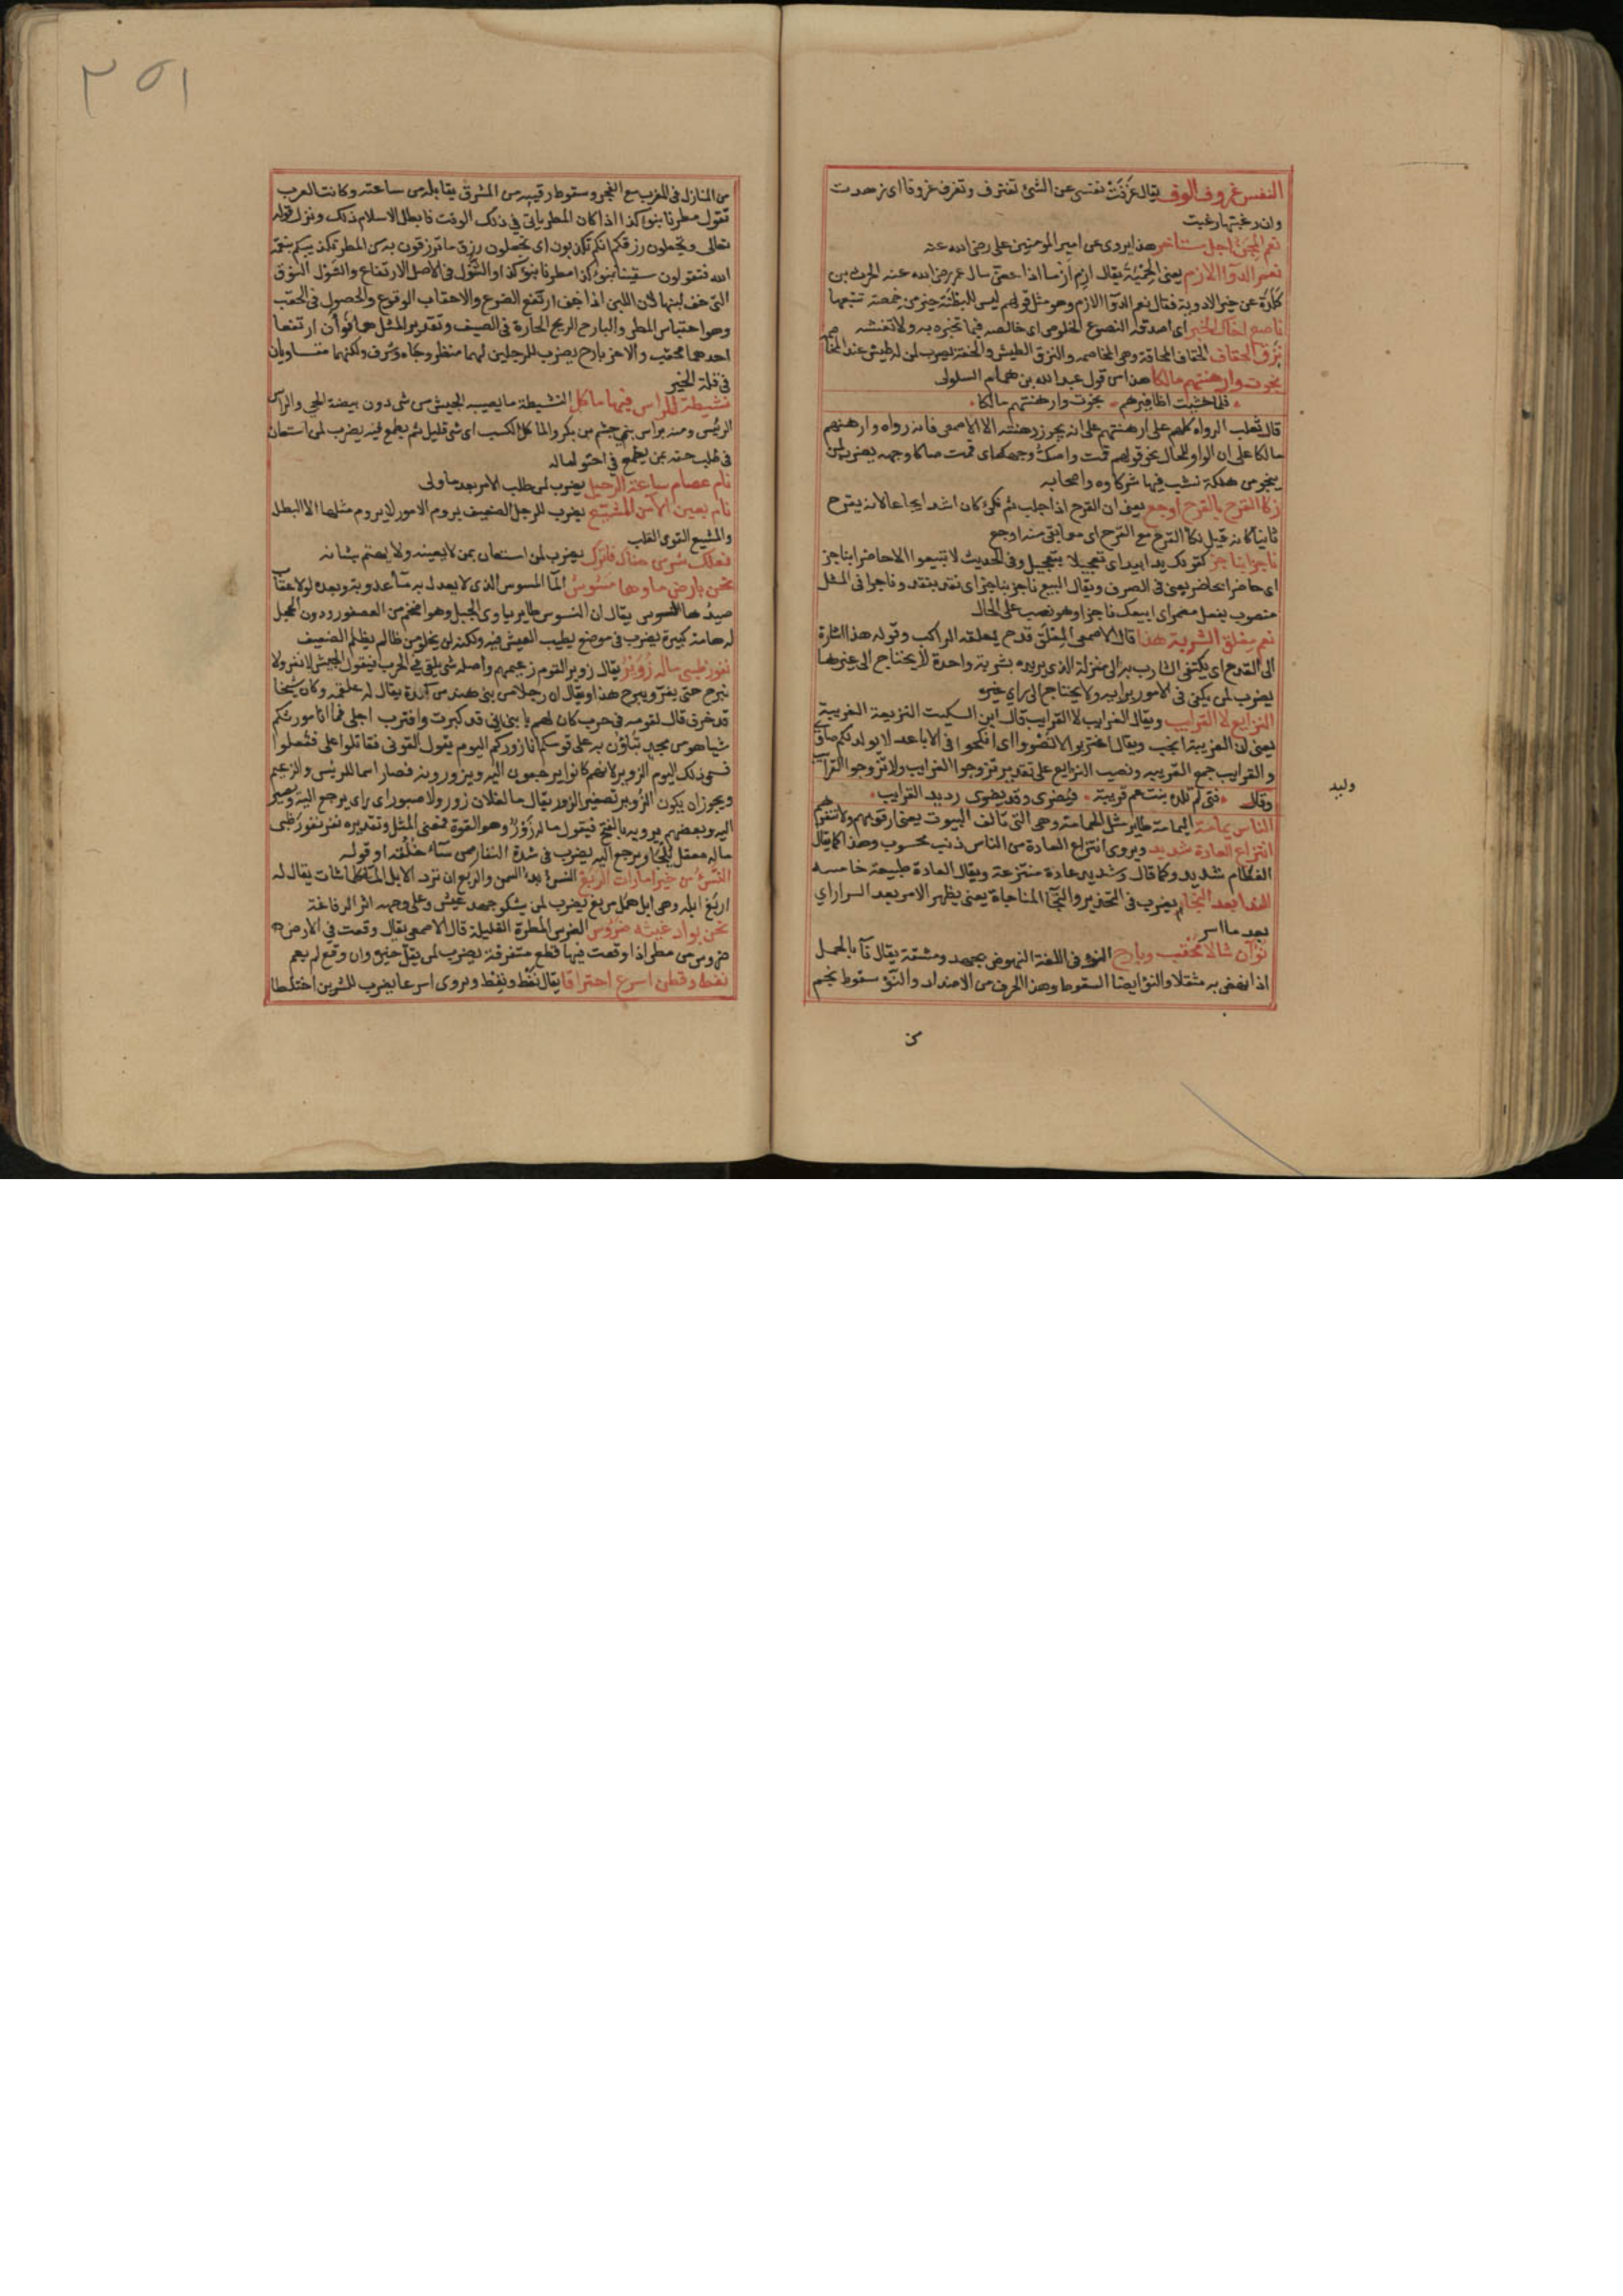 النفس عزوف الوف يقال عزفت نفسي عن الشئ تعزف وتعزف عزوفا اى زهدت
وان رغبتها رغبت
نعم المجن اجل مستاخر هذا يروى عن امير المومنين على رضى الله عنه
نعم الدوا الازم يعنى الحمية يقال ازم ازما اذا عض سال عمر رضى الله عنه الحرث بن
كلدة عن خير الادوية فقال نعم الدوا الازم وهو مثل قولهم ليس للبطنة خير من خمصة تتبعها
ناصع اخاك الخبر اى اصدقه النصوع الخلوص اى خالصه فيما تخبره به ولا تغشه
نزق الحقاق الحقاق المحاقة وهى المخاصمه والنزق الطيش والخفة يضرب لمن له طيش عند المخا
صمه
نجوت وارهنتهم مالكا هذا من قول عبد الله بن همام السلولى
فلما خشيت اظافيرهم نجوت وارهنتهم مالكا
قال ثعلب الرواه كلهم على ارهنتهم على انه يجوز رهنته الا الاصمعى فانه رواه وارهنهم
مالكا على ان الواو للحال نحو قولهم قمت واصك وجهه اى قمت صاكا وجهه يضرب لمن
ينجو من هلكة نشب فيها شركاوه واصحابه
نكا القرح بالقرح اوجع يعنى ان القرح اذا جلب ثم نكئ كان اشد ايجاعا لانه يقرح
ثانيا كانه قيل نكا القرح مع القرح اى مع ما بقى منه اوجع
ناجزا بناجز كقولك يدا بيد اى تعجيلا بتعجيل وفى الحديث لا تبيعوا الا حاضرا بناجز
اى حاضرا بحاضر يعنى فى الصرف ويقال البيع ناجز بناجز اى نقد بنقد وناجزا فى المثل
منصوب بفعل مضمر اى ابيعك ناجزا وهو نصب على الحال
نعم معلق الشربة هذا قال الاصمعى المعلق قدح يعلقه الراكب وقوله هذا اشارة
الى القدح اى يكتفى الشارب به الى منزله الذى يريده بشربة واحدة لا يحتاج الى غيرها
يضرب لمن يكتفى فى الامور برايه ولا يحتاج الى راى غيره
النزايع لا القرايب ويقال الغرايب لا القرايب قال ابن السكيت النزيعة الغريبة
يعنى ان الغريبة انجب ويقال اغتربوا لا تضووا اى انكحوا فى الاباعد لا يولد لكم ضاوى
والقرايب جمع القريبه ونصب النزايع على تقدير تزوجوا الغرايب ولا تزوجوا القرايب
وقال فتى لم تلده بنت عم قريبة فيضوى وقد يضوى رديد القرايب
وليد
الناس يمامة اليمامة طاير مثل الحمامة وهى التى تالف البيوت يعنى ارفق بهم ولا تنفرهم
انتزاع العادة شديد ويروى انتزاع العادة من الناس ذنب محسوب وهذا كما يقال
الفطام شديد وكما قال وشديد عادة منتزعة ويقال العادة طبيعة خامسه
الندا بعد النجا يضرب فى التحذير والنجا المناجاة يعنى يظهر الامر بعد السرار اى
بعد ما اسر
نوآن شالا محقب وبارح النوء فى اللغة النهوض بجهد ومشقة يقال نآ بالحمل
اذا نهض به مثقلا والنوء ايضا السقوط وهذا الحرف من الاضداد والنوء سقوط نجم
من
٢٥١
من المنازل فى المغرب مع الفجر وسقوط رقيبه من المشرق يقابله من ساعته وكانت العرب
تقول مطرنا بنوء كذا اذا كان المطر ياتى فى ذلك الوقت فابطل الاسلام ذلك ونزل قوله
تعالى وتجعلون رزقكم انكم تكذبون اى تجعلون رزق ما ترزقون به من المطر تكذيبكم بنعمة
الله فتقولون سقينا بنوء كذا مطرنا بنوء كذا والشول فى الاصل الارتفاع والشول النوق
التى خف لبنها لان اللبن اذا خف ارتفع الضرع والاحقاب الوقوع والحصول فى الحقب
وهو احتباس المطر والبارح الريح الحارة فى الصيف وتقدير المثل هما نوآن ارتفعا
احدهما محقب والاخر بارح يضرب للرجلين لهما منظر وجاه وشرف ولكنهما متساويان
فى قلة الخير
نشيطة للراس فيها ماكل النشيطة ما يصيبه الجيش من شى دون بيضة الحى والراس
الرئيس ومنه براس بنى جشم بن بكر والماكل الكسب اى شى قليل ثم يطمع فيه يضرب لمن استعان
فى طلب حقه بمن يطمع فى احتوا ماله
نام عصام ساعة الرحيل يضرب لمن طلب الامر بعد ما ولى
نام بعين الامن المشيع يضرب للرجل الضعيف يروم الامور لا يروم مثلها الا البطل
والمشيع القوى القلب
نعلك شوى هناك فاترك يضرب لمن استعان بمن لا يعينه ولا يهتم بشانه
نحن بارض ماوها مسوس الماء المسوس الذى لا يعدل به ماء عذوبة وبعده لولا عقاب
صيدها النسوس يقال ان النسوس طاير ياوى الجبل وهو اضخم من العصفور ودون الحجل
له هامة كبيرة يضرب فى موضع يطيب العيش فيه ولكنه لن يخلو من ظالم يظلم الضعيف
نفور ظبى ماله زوير يقال زوير القوم زعيمهم واصله شى يلقى فى الحرب فيقول الجيش لا نفر ولا
نبرح حتى يفر ويبرح هذا ويقال ان رجلا من بنى هند من كندة يقال له علقمه وكان شيخا
قد خرف قال لقومه فى حرب كان لهم يا بنى انى قد كبرت واقترب اجلى فما انا مورثكم
شيا هو من مجد تبلون به على قومكم انا زوركم اليوم يقول القونى فقاتلوا على ففعلوا
فسمى ذلك اليوم الزوير لانهم كانوا يرجعون اليه ويزورونه فصار اسما للرئيس والزعيم
ويجوز ان يكون الزوير تصغير الزور يقال ما لفلان زور ولا صيور اى راى يرجع اليه ويصير
اليه وبعضهم يرويه بالفتح فيقول ماله زور وهو القوة فمعنى المثل وتقديره نفر نفور ظبى
ماله معقل يلجا ويرجع اليه يضرب فى شدة النفار من ساء خلقه او قوله
النسؤ من خير امارات الربغ النسئ بدء السمن والربغ ان ترد الابل الماء كلما شات يقال له
اربغ ابله وهى ابل همل مربغ يضرب لمن يشكو جهد عيش وعلى وجهه اثر الرفاغة
نحن بواد غيثه ضروس الضرس المطرة القليلة قال الاصمعى يقال وقعت فى الارض
ضروس من مطر اذا وقعت فيها قطع متفرقة يضرب لمن يقل خيره وان وقع لم يعم
نفط وقطن اسرع احتراقا يقال نفط ونفط ويروى اسرعا يضرب للشرين اختلطا